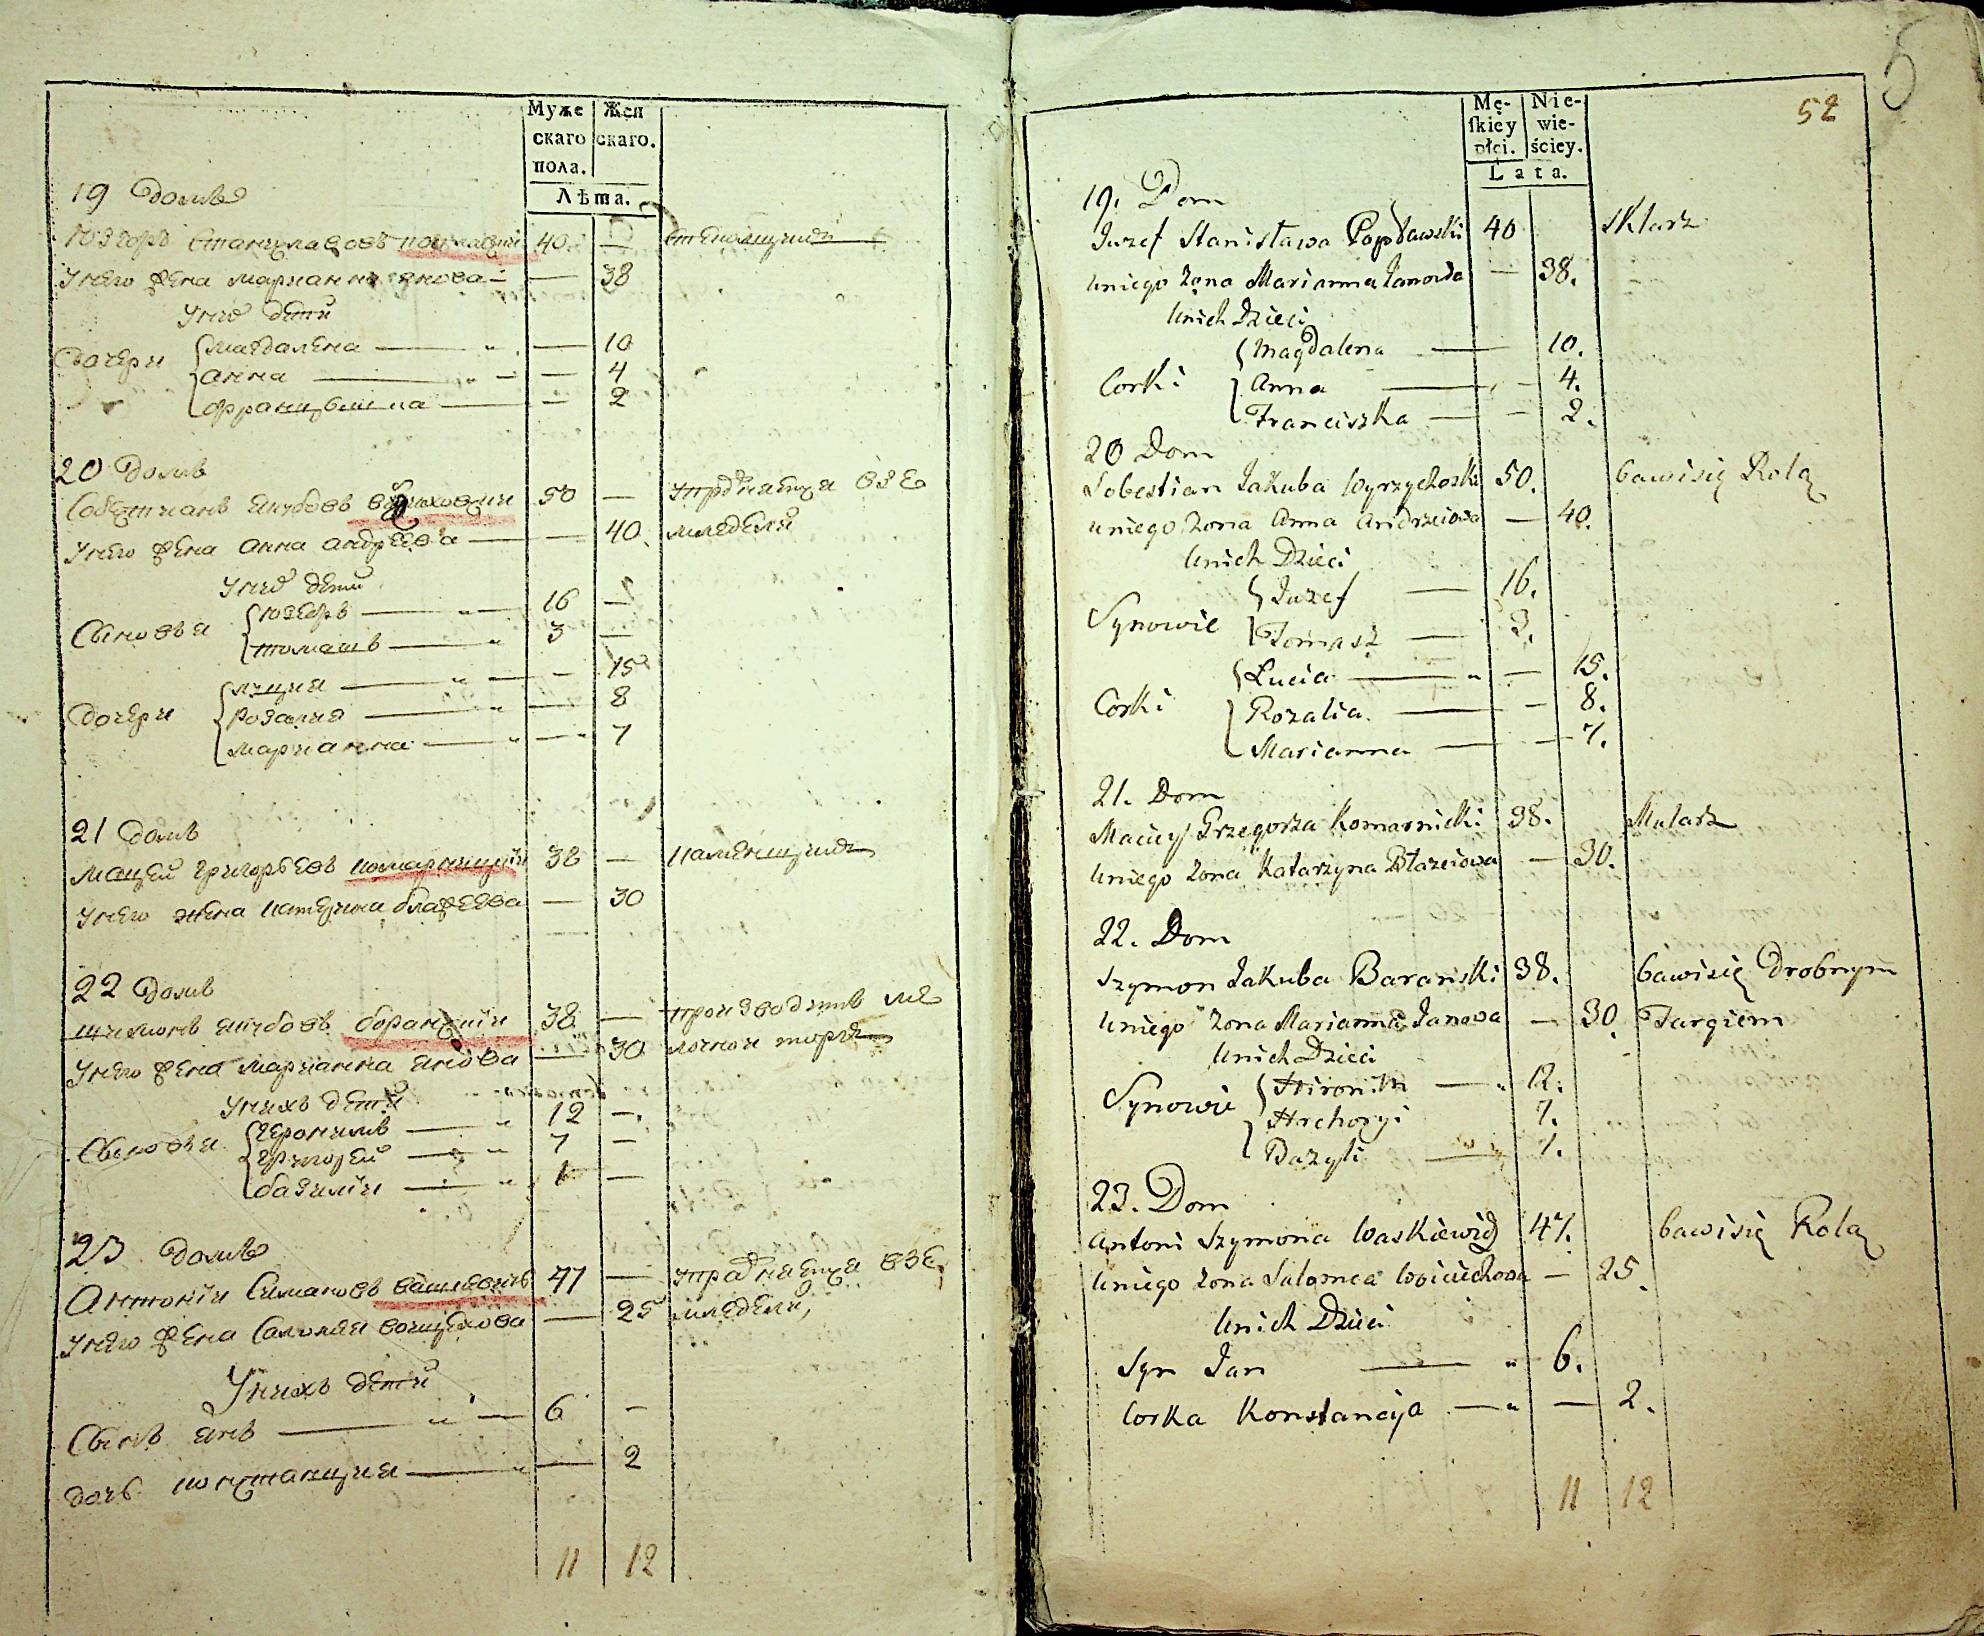 Муже
скаго
пола.
Жен
скаго.
Лѣта.
19 домъ
Юзефъ Станиславовъ 40 —
У него жена Марианна Янова — — 38
У них дети
Дочери Магдалена — — 10
Анна — — 4
Францышка — — 2
20 домъ
Якубовъ 50 — упражняется в зе
У него жена Анна Андреева — — 40 мледелии
У них дети
Сыновья Юзефъ — 16 —
Томашъ — 3 —
Дочери Луция — — 15
Розалия — — 8
Марианна — — 7
21 домъ
Мацей Григорьевъ Комарницкий 38 — каменщикъ
У него жена Катержина Блажеева — 30
22 домъ
Шимонъ Якубовъ Боранский 38 — производитъ ме
У него жена Марианна Янова — 30 лочной торгъ
У нихъ дети
Сыновья Геронимъ — 12 —
Григорей — 7 —
Базилий — 1 —
23 домъ
Антоний Симановъ Вашкевичъ 47 — упражняется в зе
У него жена Саломея Войцехова — 25 мледелии,
У нихъ дети
Сынъ Янъ — 6 —
Дочь Констанция — — 2
11 12
5
52
Mę-
skiey
płci.
Nie-
wie-
ściey.
Lata.
19. Dom
Juzef Stanisława Popławski 40 sklarz
u niego Zona Marianna Janowa — 38.
U nich Dzieci
Corki Magdalena — 10.
Anna — — 4.
Franciszka — — 2.
20 Dom
Sobestian Jakuba Wyrzykoski 50. bawi się Rolą
u niego Zona Anna Andrzeiowa — 40.
U nich Dzieci
Synowie Juzef — 16.
Tomasz — 3.
Corki Lucia — " — 15.
Rozalia — — 8.
Marianna — — 7.
21. Dom
Maciey Grzegorza Komarnicki 38. Mularz
U niego Zona Katarzyna Błazeiowa — 30.
22. Dom
Szymon Jakuba Barański 38. bawi się Drobnym
U niego Zona Marianna Janowa — 30. Targiem
U nich Dzieci
Synowie Hironim — " 12.
Hrehoryi 7.
Bazyli — 1.
23. Dom
Antoni Szymona Waskiewicz 47. bawi się Rolą
U niego Zona Salomea Woiciechowa — 25.
U nich Dzieci
Syn Jan — " 6.
Corka Konstancya — " — 2.
11 12